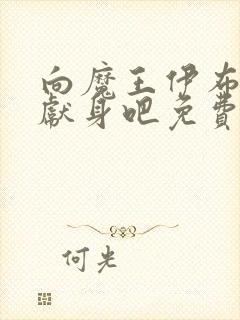 向魔王伊布
獻身吧免費
何光